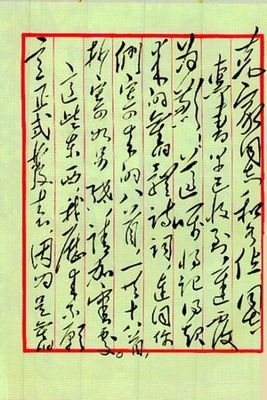 克家同志和各位同志
惠書早已收到，遲復
为歉！遵嘱將记得起
来的舊體诗词，連同你
们寄来的八首，一共十八首，
抄寄如另纸，请加審处。
这些东西，我歷来不願
意正式發表，因为是舊